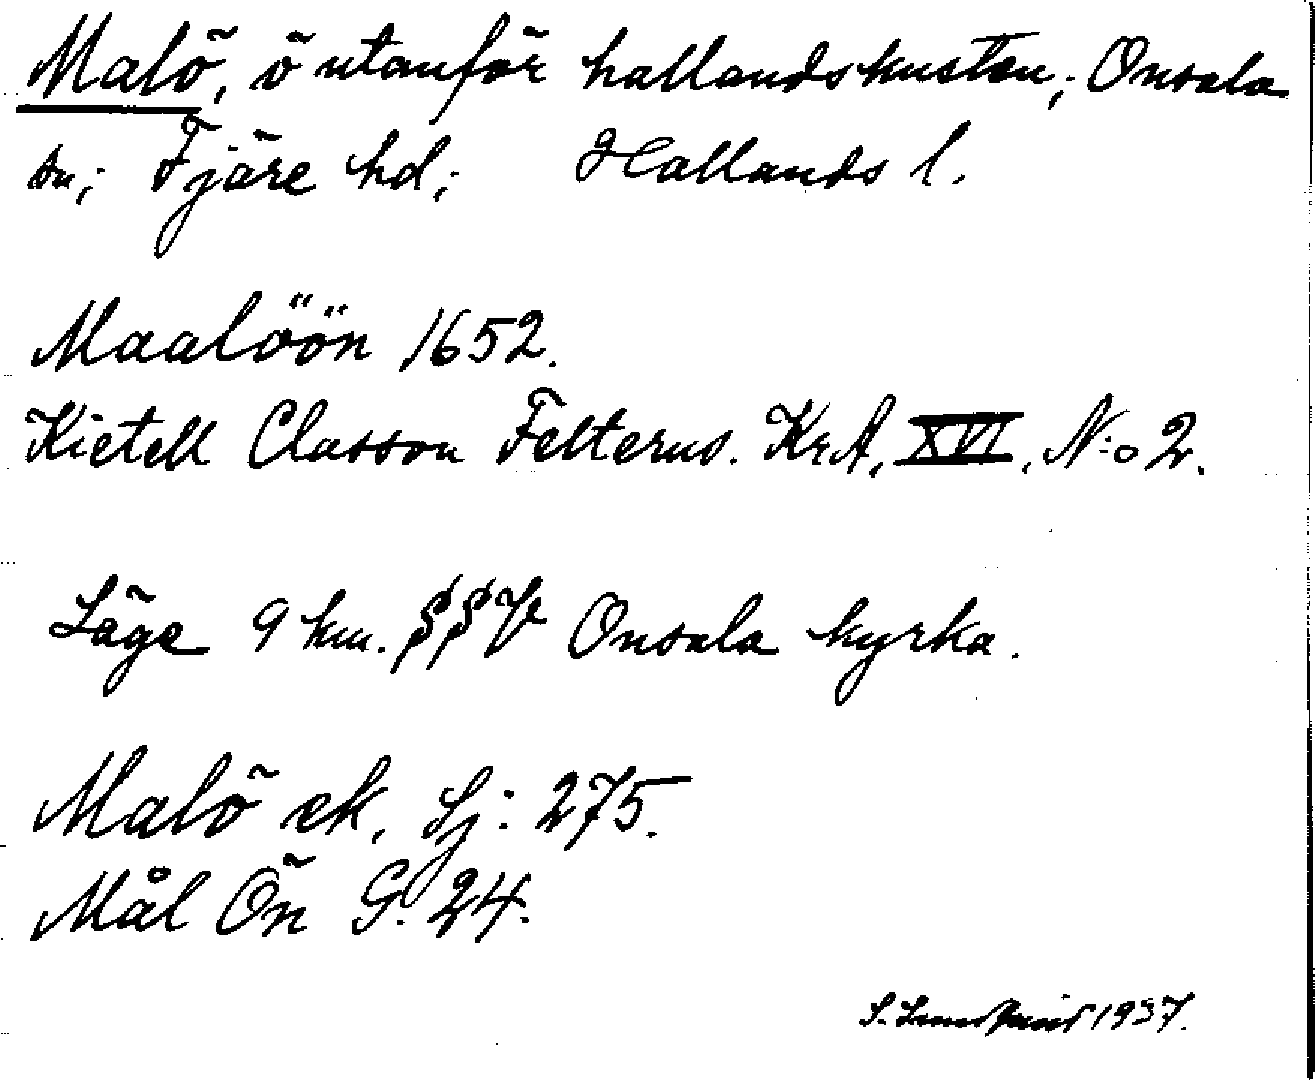 Malö, ö utanför hallandskusten; Onsala
sn; Fjäre hd; Hallands l.
Maalöön 1652.
Kietell Classon Felterus. KrA, XVI, N:o 2.
Läge 9 km. SSV Onsala kyrka.
Malö ek, Sj: 275.
Mål Ön G. 24.
S. 1937.